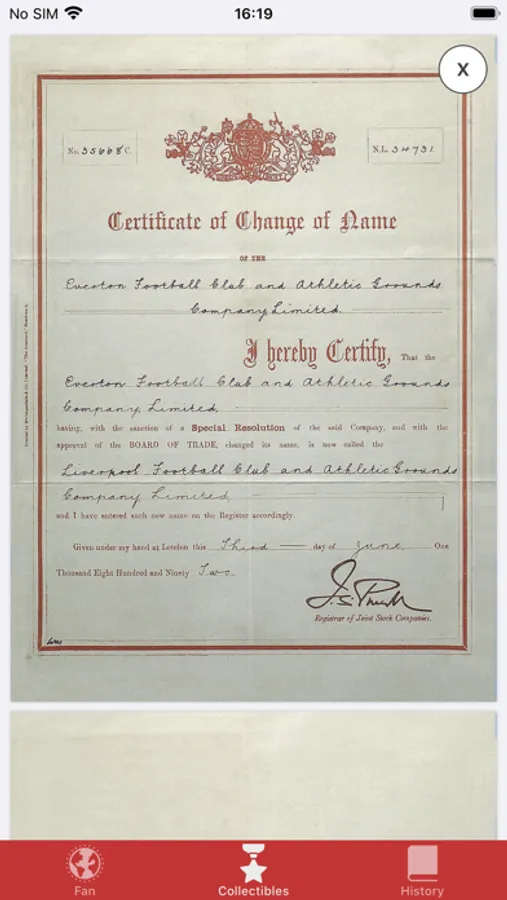 No SIM 16:19
X
No. 35668 C. N.L. 34731
Certificate of Change of Name
OF THE
Everton Football Club and Athletic Grounds
Company Limited.
I hereby Certify, That the
Everton Football Club and Athletic Grounds
Company, Limited,
having, with the sanction of a Special Resolution of the said Company, and with the
approval of the BOARD OF TRADE, changed its name, is now called the
Liverpool Football Club and Athletic Grounds
Company Limited,
and I have entered such new name on the Register accordingly.
Given under my hand at London this Third day of June, One
Thousand Eight Hundred and Ninety Two.
Registrar of Joint Stock Companies.
Fan Collectibles History